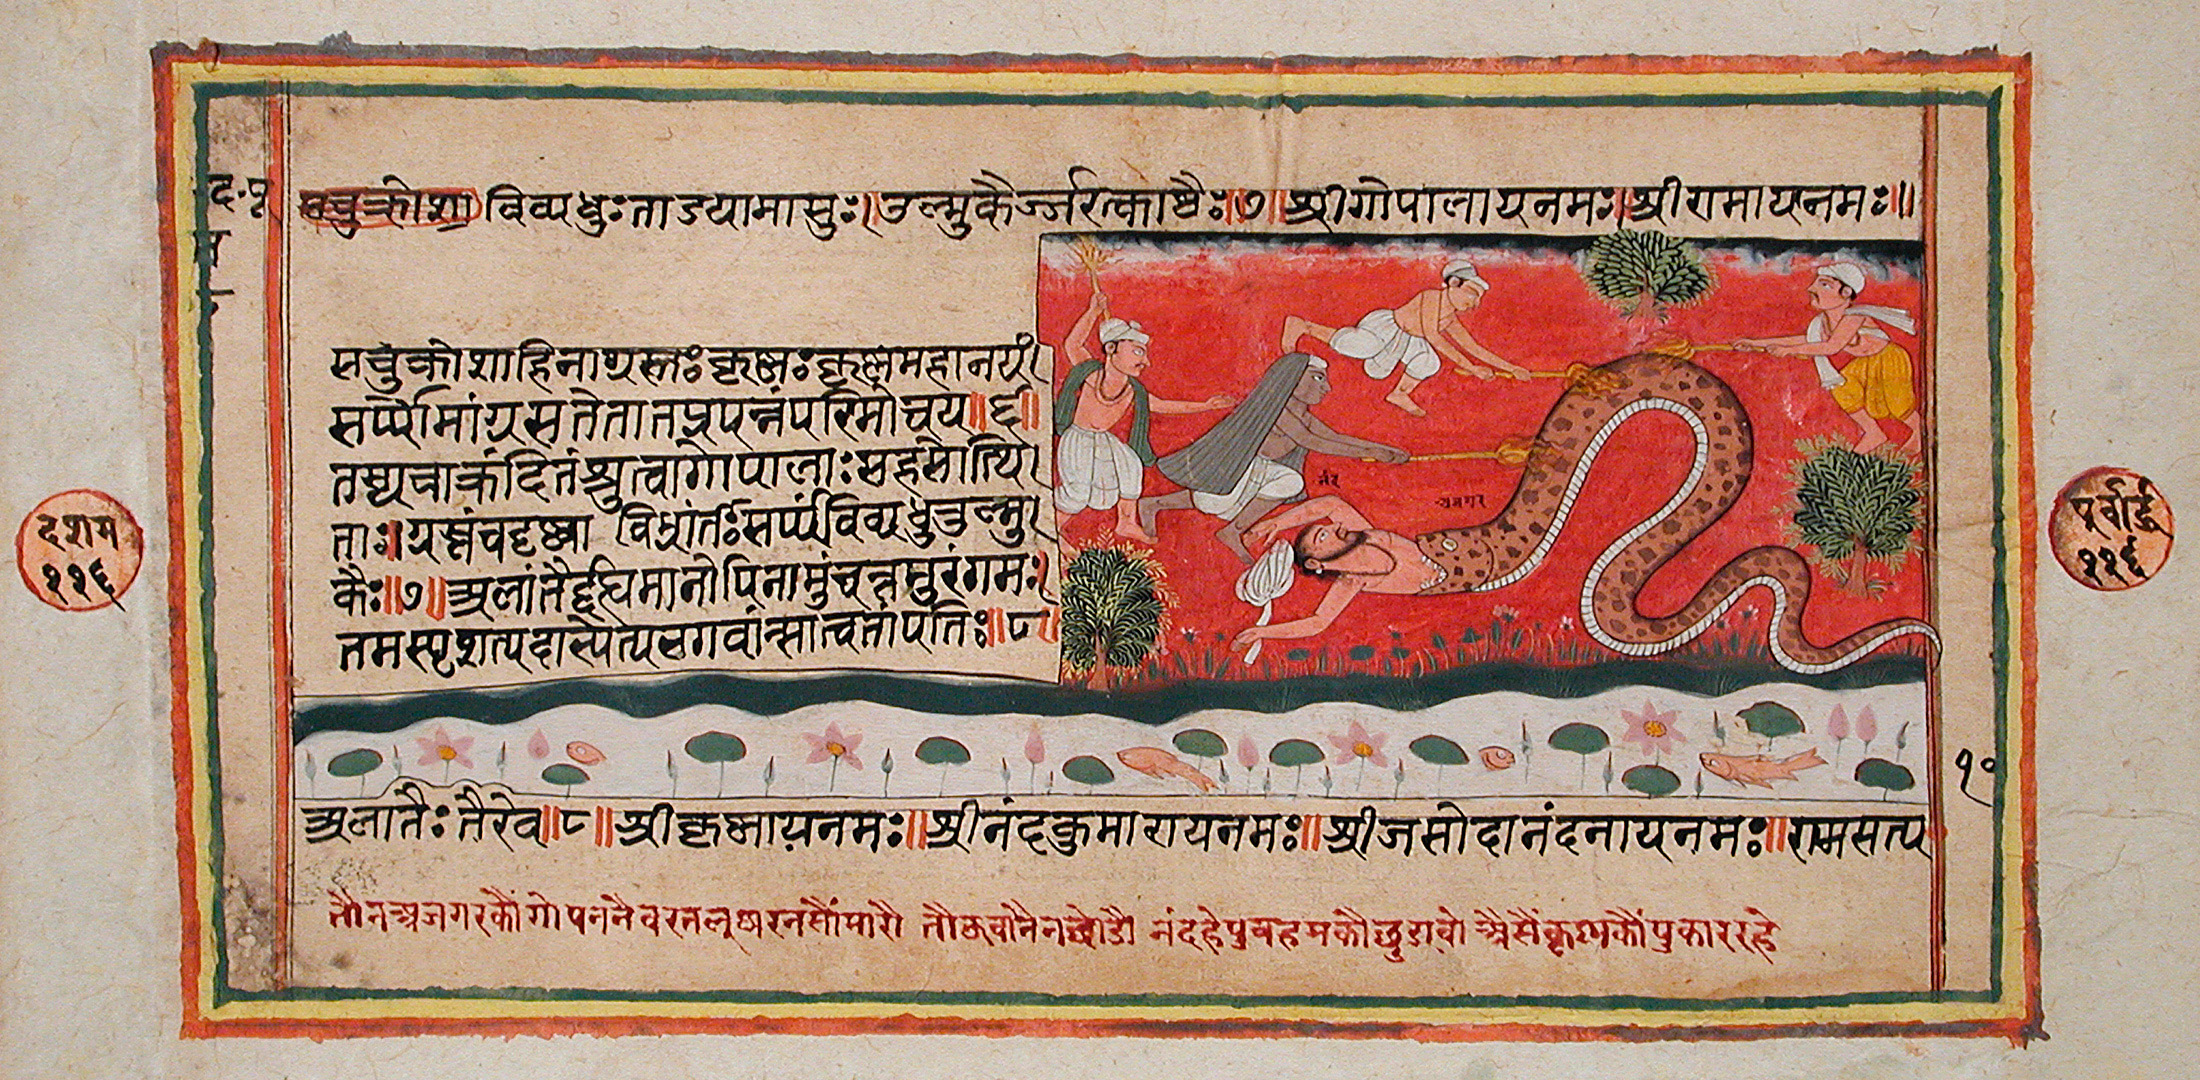 द. पू
स
चुक्रोशा विव्यधुः ताडयामासुः। उल्मुकैर्ज्जरत्काष्ठैः॥७॥ श्रीगोपालायनमः॥ श्रीरामायनमः॥
सचुक्रोशाहिनाग्रस्तः कृष्णः कृष्णमहानयं।
सर्प्पोमांग्रसतेतातप्रपन्नंपरिमोचय॥६॥
तस्यचाक्रंदितंश्रुत्वागोपालाः सहसोत्थि।
ताः॥ग्रस्तंचदृष्ट्वा विभ्रांतोः सर्प्पंविव्यधुरुल्मु।
कैः॥७॥ अलातैर्द्दह्यमानोपिनामुंचत्तमुरंगमः।
तमस्पृशत्पदाभ्येत्यभगवान्सात्वतांपतिः॥८॥
नंद
अजगर
दशम
११६
पूर्वार्द्ध
११६
१०
अलातैः तैरेव॥८॥ श्रीकृष्णायनमः॥ श्रीनंदकुमारायनमः॥ श्रीजसोदानंदनायनमः॥ रामसत्य
तौनअजगरकौंगोपननैवरतलूघरनसौंमारौ तौऊवोनैनछोडौ नंदहेपुत्रहमकौछुडावो अैसैंकृष्णकौंपुकाररहे